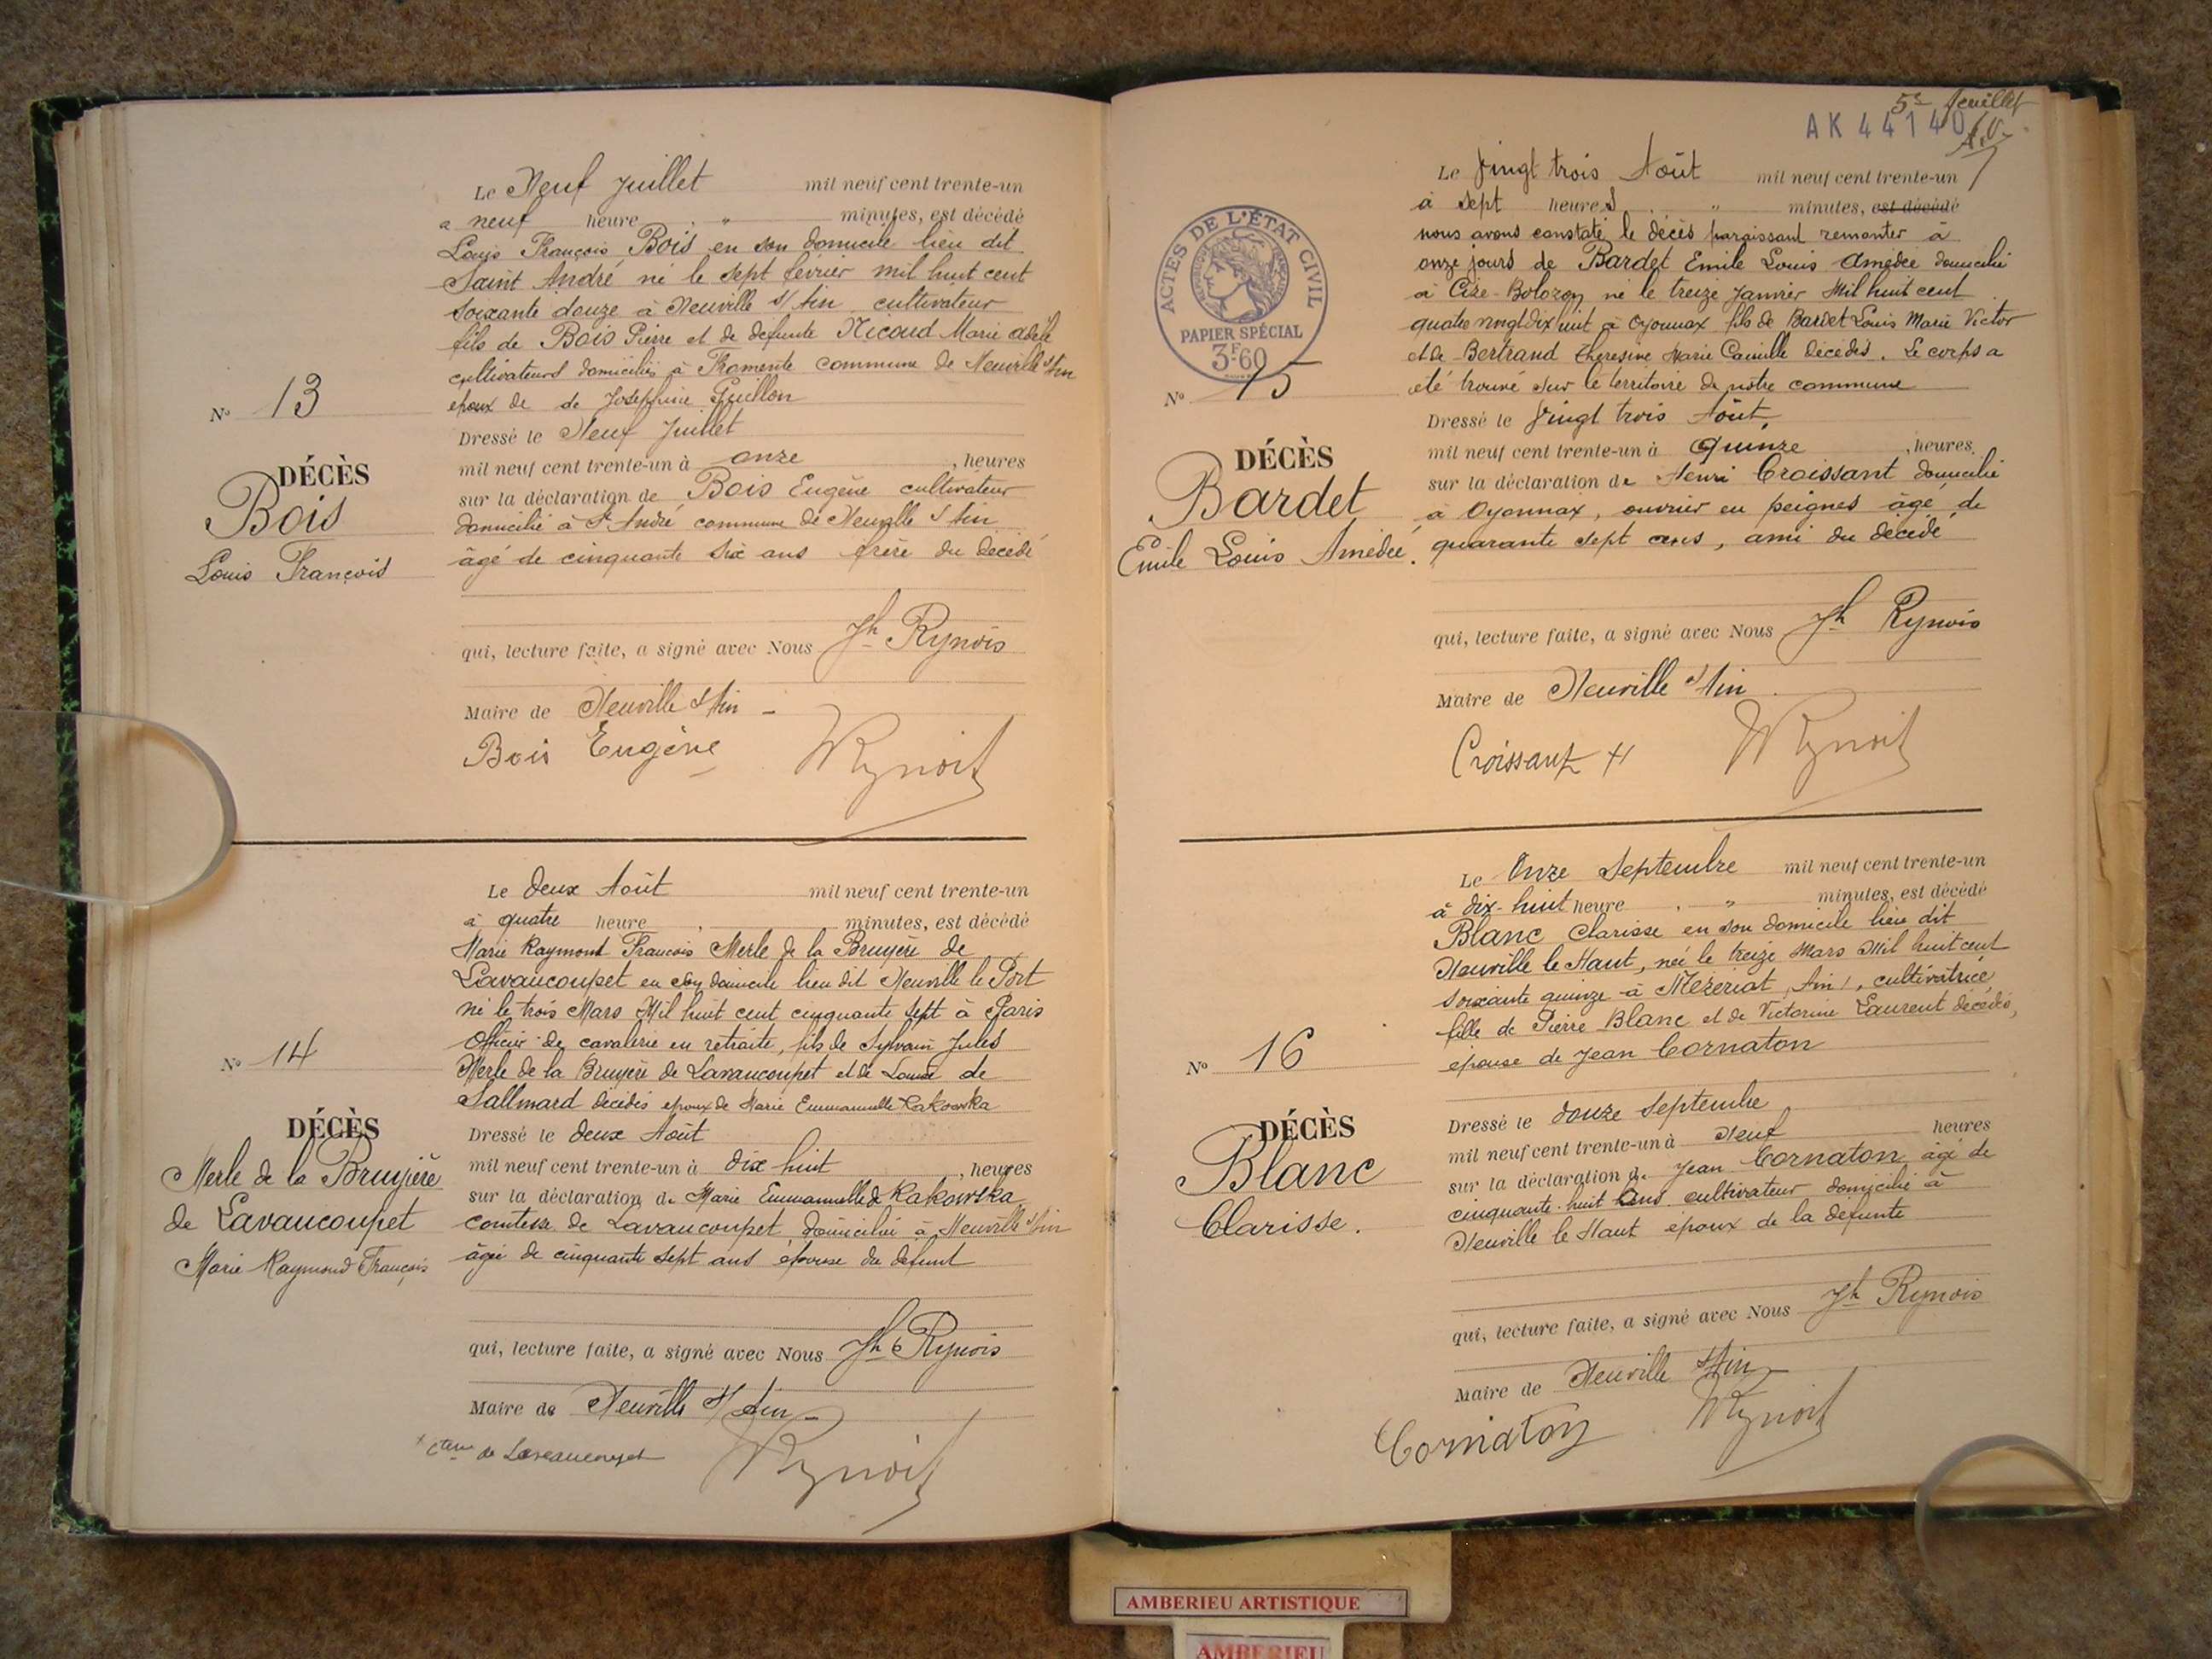 Le Neuf Juillet mil neuf cent trente-un
à neuf heure , " minutes, est décédé
Louis François Bois en son domicile lieu dit
Saint André né le sept février mil huit cent
soixante douze à Neuville s/Ain cultivateur
fils de Bois Pierre et de défunte Nicoud Marie adèle
cultivateurs domiciliés à Fromente commune de Neuville s/Ain
époux de de Joséphine Guillon
Nº 13
Dressé le Neuf Juillet
mil neuf cent trente-un à onze , heures
DÉCÈS
Bois
Louis François
sur la déclaration de Bois Eugène cultivateur
domicilié à St André commune de Neuville s/Ain
âgé de cinquante six ans frère du décédé
qui, lecture faite, a signé avec Nous Jh Rynois
Maire de Neuville s/Ain -
Bois Eugène Rynois
Le deux Août mil neuf cent trente-un
à quatre heure , minutes, est décédé
Marie Raymond François Merle de la Bruyère de
Lavaucoupet en son domicile lieu dit Neuville le Port
né le trois Mars Mil huit cent cinquante sept à Paris
Officier de cavalerie en retraite, fils de Sylvain Jules
Merle de la Bruyère de Lavaucoupet et de Louise de
Sallmard décédés époux de Marie Emmanuelle Rakowska
Nº 14
DÉCÈS
Merle de la Bruyière
de Lavaucoupet
Marie Raymond François
Dressé le deux Août
mil neuf cent trente-un à dix huit , heures
sur la déclaration de Marie Emmanuelle de Rakowska
comtesse de Lavaucoupet domiciliée à Neuville s/Ain
âgée de cinquante sept ans épouse du défunt
qui, lecture faite, a signé avec Nous Jh Rynois
Maire de Neuville s/Ain -
de Lavaucoupet Rynois
5e feuillet
AK 44140
Le Vingt trois Août mil neuf cent trente-un
à sept heures . " minutes, est décédé
nous avons constaté le décès paraissant remonter à
onze jours de Bardet Emile Louis Amédée domicilié
à Cize-Bolozon né le treize Janvier Mil huit cent
quatre vingt dix huit à Oyonnax fils de Bardet Louis Marie Victor
et de Bertrand Theresine Marie Camille décédés. Le corps a
été trouvé sur le territoire de notre commune
ACTES DE L'ÉTAT CIVIL
RÉPUBLIQUE FRANÇAISE
PAPIER SPÉCIAL
3F60
Nº 15
DÉCÈS
Bardet
Emile Louis Amédée.
Dressé le Vingt trois Août,
mil neuf cent trente-un à Quinze , heures
sur la déclaration de Henri Croissant domicilié
à Oyonnax, ouvrier en peignes âgé de
quarante sept ans, ami du décédé
qui, lecture faite, a signé avec Nous Jh Rynois
Maire de Neuville s/Ain
Croissant H Rynois
Le Onze Septembre mil neuf cent trente-un
à dix-huit heure . " minutes, est décédé
Blanc Clarisse en son domicile lieu dit
Neuville le Haut, née le treize Mars Mil huit cent
soixante quinze à Mézériat (Ain), cultivatrice,
fille de Pierre Blanc et de Victorine Laurent décédés,
épouse de Jean Cornaton
Nº 16
DÉCÈS
Blanc
Clarisse.
Dressé le douze Septembre
mil neuf cent trente-un à Neuf heures
sur la déclaration de Jean Cornaton âgé de
cinquante-huit ans cultivateur domicilié à
Neuville le Haut époux de la défunte
qui, lecture faite, a signé avec Nous Jh Rynois
Maire de Neuville s/Ain
Cornaton Rynois
AMBERIEU ARTISTIQUE
AMBERIEU